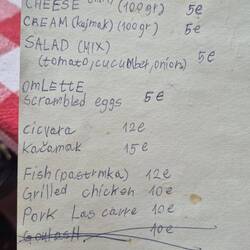 CHEESE (100gr) 5€
CREAM (kajmak) (100gr) 5€
SALAD (MIX)
(tomato, cucumber, onions) 5€
OMLETTE
Scrambled eggs 5€
Cicvara 12€
Kačamak 15€
Fish (pastrmka) 12€
Grilled chicken 10€
Pork Las carre 10€
Goulash 10€